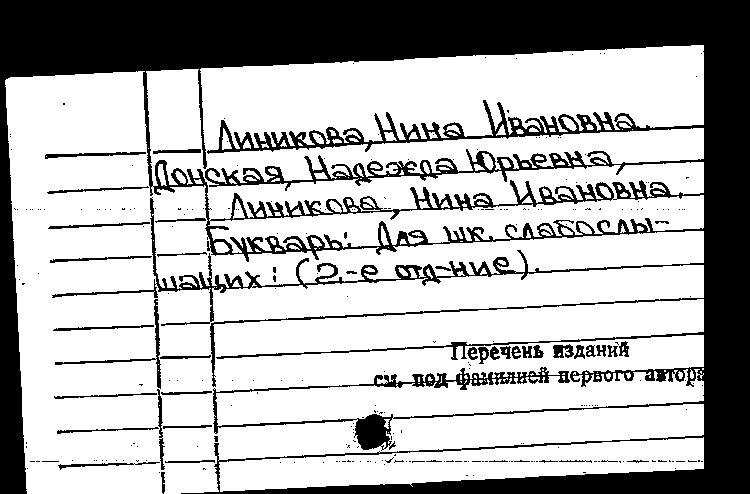 Линикова, Нина Ивановна.
Донская, Надежда Юрьевна,
Линикова, Нина Ивановна.
Букварь: Для шк. слабослы-
шащих: (2-е отд-ние).
Перечень изданий
см. под фамилией первого автора